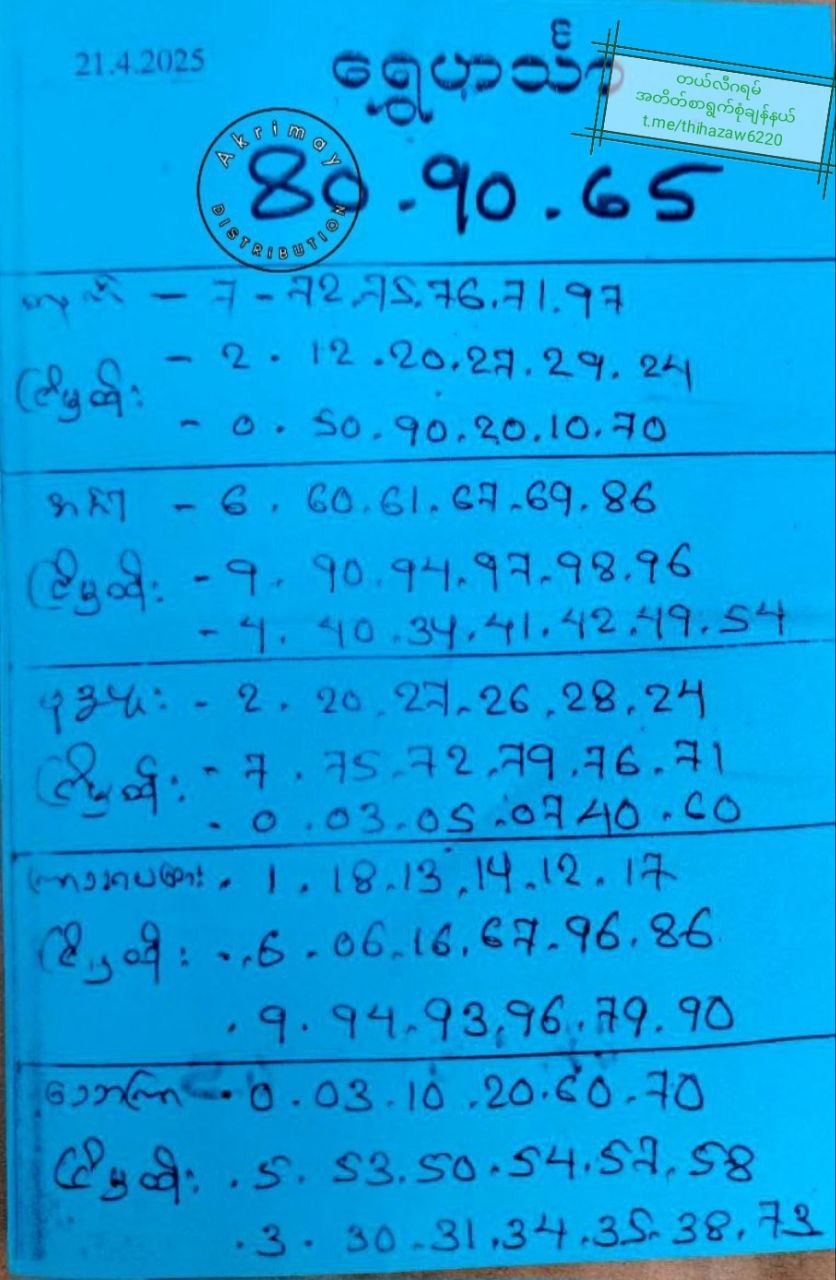 21.4.2025
ရွှေဟသ်ာ
တယ်လီဂရမ်
အတိတ်စာရွက်စုံချန်နယ်
t.me/thihazaw6220
Akrimay
DISTRIBUTION
80.90.65
- 7 - 72.75.76.71.97
- 2 . 12 .20.27.29.24
ငြိမ္မဏီး
- 0 . 50.90.20.10.70
- 6 . 60.61.67.69.86
- 9 . 90.94.97.98.96
- 4 . 40.34.41.42.49.54
- 2 . 20.27.26.28.24
- 7 . 75.72.79.76.71
. 0 .03.05.07 40.60
. 1 . 18.13.14.12.17
. 6 . 06.16.67.96.86
. 9 . 94.93.96.79.90
. 0 . 03.10.20.60.70
. 5 . 53.50.54.57.58
. 3 . 30.31.34.35.38.73